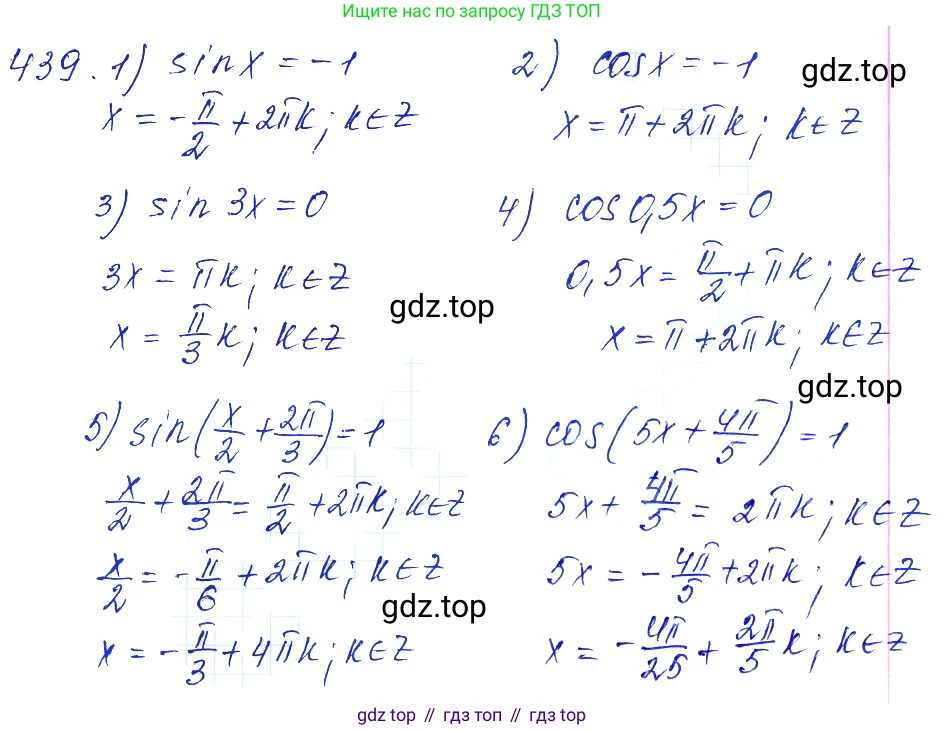 Ищите нас по запросу ГДЗ ТОП
439. 1) sin x = -1
x = -π/2 + 2πk; k∈Z
2) cos x = -1
x = π + 2πk; k∈Z
gdz.top
3) sin 3x = 0
3x = πk; k∈Z
x = π/3 k; k∈Z
gdz.top
4) cos 0,5x = 0
0,5x = π/2 + πk; k∈Z
x = π + 2πk; k∈Z
gdz.top
5) sin(x/2 + 2π/3) = 1
x/2 + 2π/3 = π/2 + 2πk; k∈Z
x/2 = -π/6 + 2πk; k∈Z
x = -π/3 + 4πk; k∈Z
gdz.top
6) cos(5x + 4π/5) = 1
5x + 4π/5 = 2πk; k∈Z
5x = -4π/5 + 2πk; k∈Z
x = -4π/25 + 2π/5 k; k∈Z
gdz top // гдз топ // gdz top